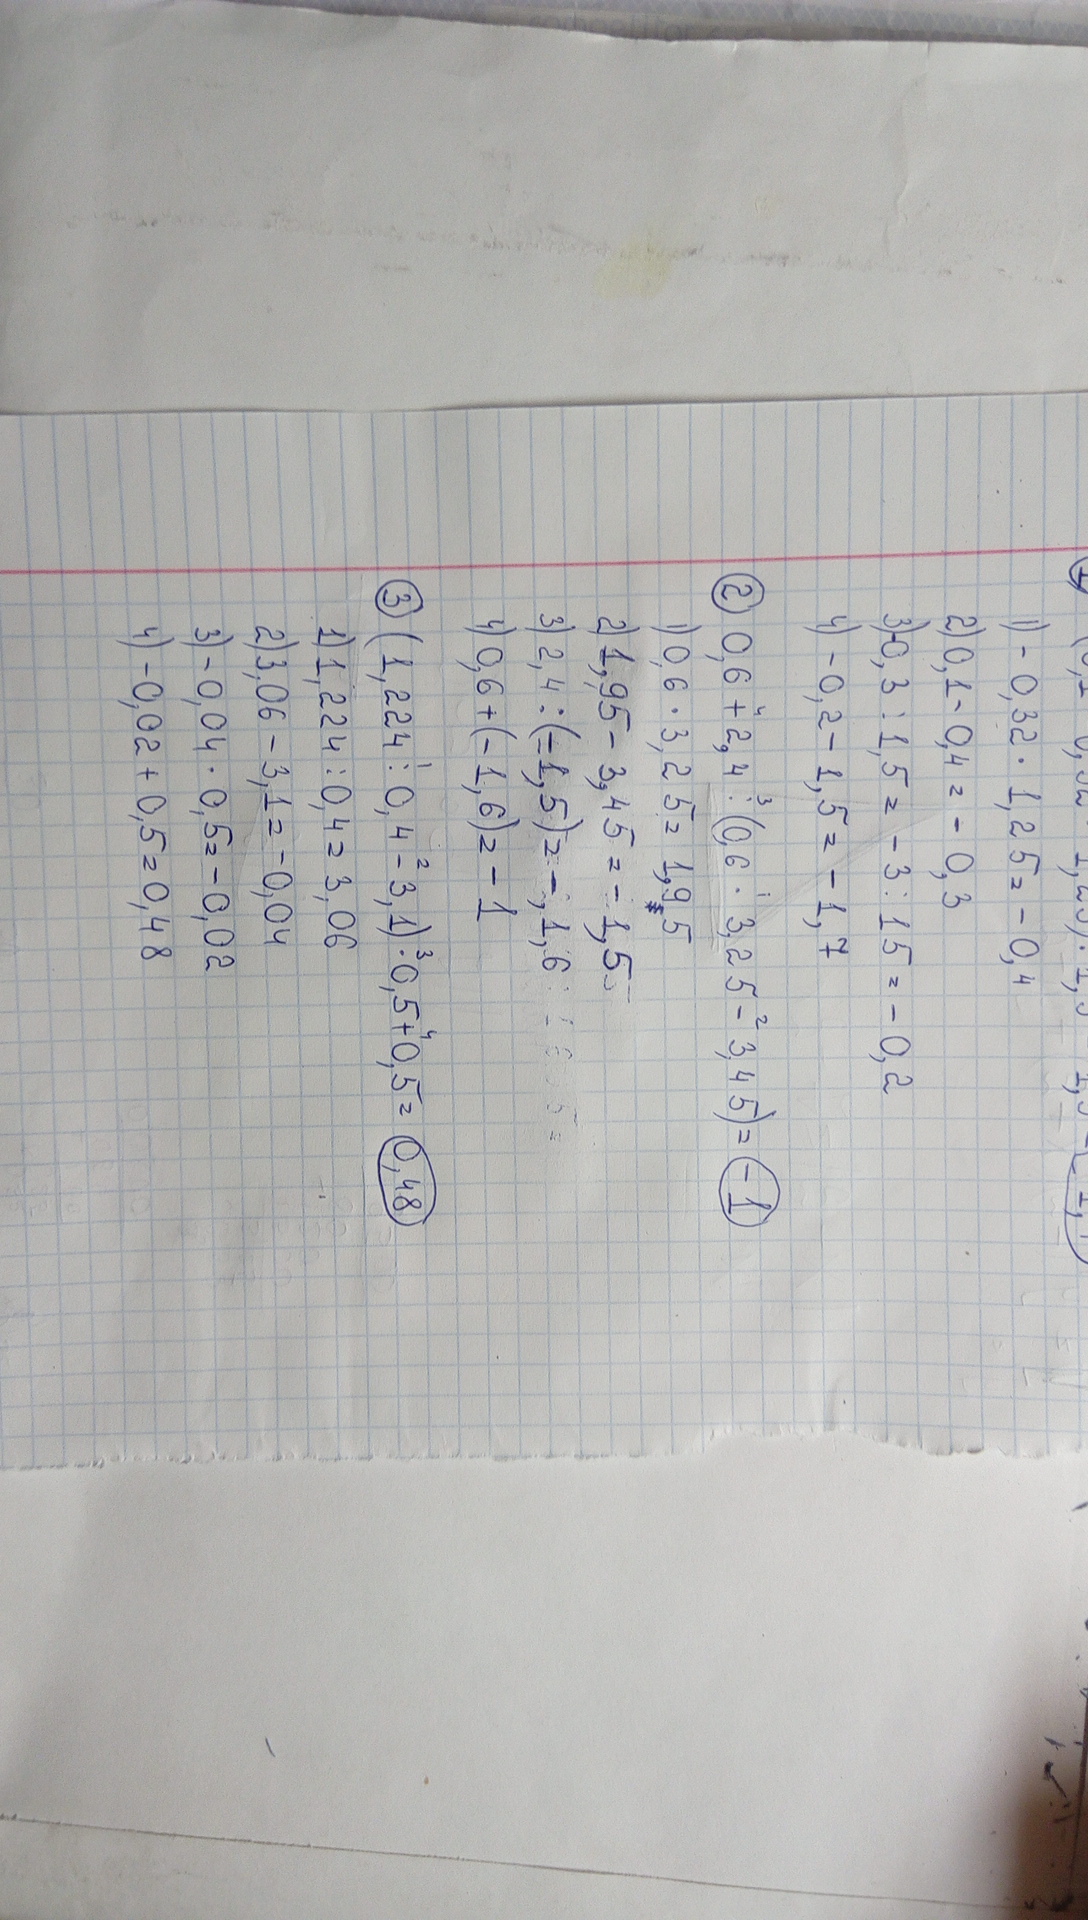 1) -0,32 · 1,25 = -0,4
2) 0,1-0,4 = -0,3
3) -0,3 : 1,5 = -3 : 15 = -0,2
4) -0,2 - 1,5 = -1,7
② 0,6 + 2,4 : (0,6 · 3,25 - 3,45) = -1
1) 0,6 · 3,25 = 1,95
2) 1,95 - 3,45 = -1,5
3) 2,4 : (-1,5) = -1,6
4) 0,6 + (-1,6) = -1
③ (1,224 : 0,4 - 3,1) · 0,5 + 0,5 = 0,48
1) 1,224 : 0,4 = 3,06
2) 3,06 - 3,1 = -0,04
3) -0,04 · 0,5 = -0,02
4) -0,02 + 0,5 = 0,48